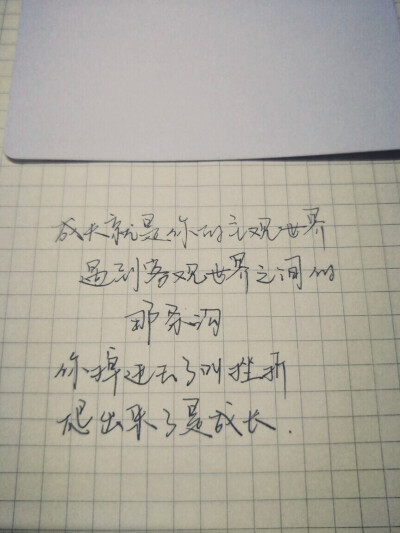 成长就是你的主观世界
遇到客观世界之间的
那条沟
你掉进去了叫挫折
爬出来了是成长.